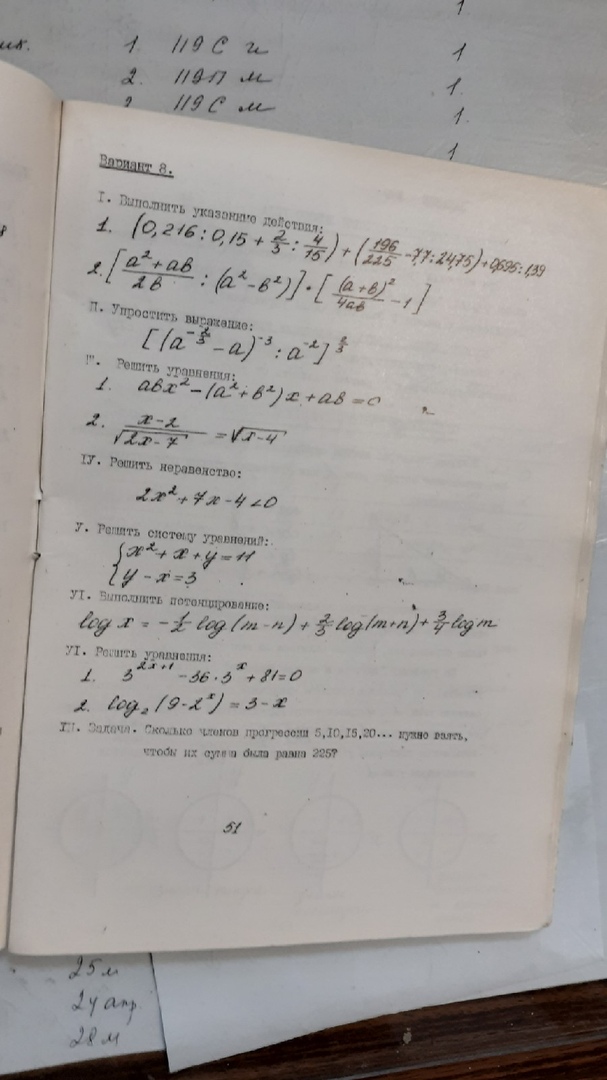 1. 119 С г 1
2. 119П м 1.
2 119 С м 1.
1
Вариант 8.
I. Выполнить указанные действия:
1. (0,216 : 0,15 + 2/3 : 4/15) + (196/225 - 7,7 : 24,75) + 0,695 : 1,39
2. [(a² + aв)/2в : (a² - в²)] · [(a + в)²/4aв - 1]
П. Упростить выражение:
[(a^(-2/3) - a)^(-3) : a^(-2)]^(2/3)
Решить уравнения:
1. aвx² - (a² + в²)x + aв = 0
2. (x - 2)/√(2x - 7) = √(x - 4)
IУ. Решить неравенство:
2x² + 7x - 4 < 0
У. Решить систему уравнений:
{x² + x + y = 11
{y - x = 3
УI. Выполнить потенцирование:
log x = -1/2 log(m - n) + 2/3 log(m + n) + 3/4 log m
УI. Решить уравнения:
1. 3^(2x+1) - 36 · 3^x + 81 = 0
2. log₂(9 - 2^x) = 3 - x
Задача. Сколько членов прогрессии 5,10,15,20... нужно взять,
чтобы их сумма была равна 225?
51
25 м
24 апр.
28 м